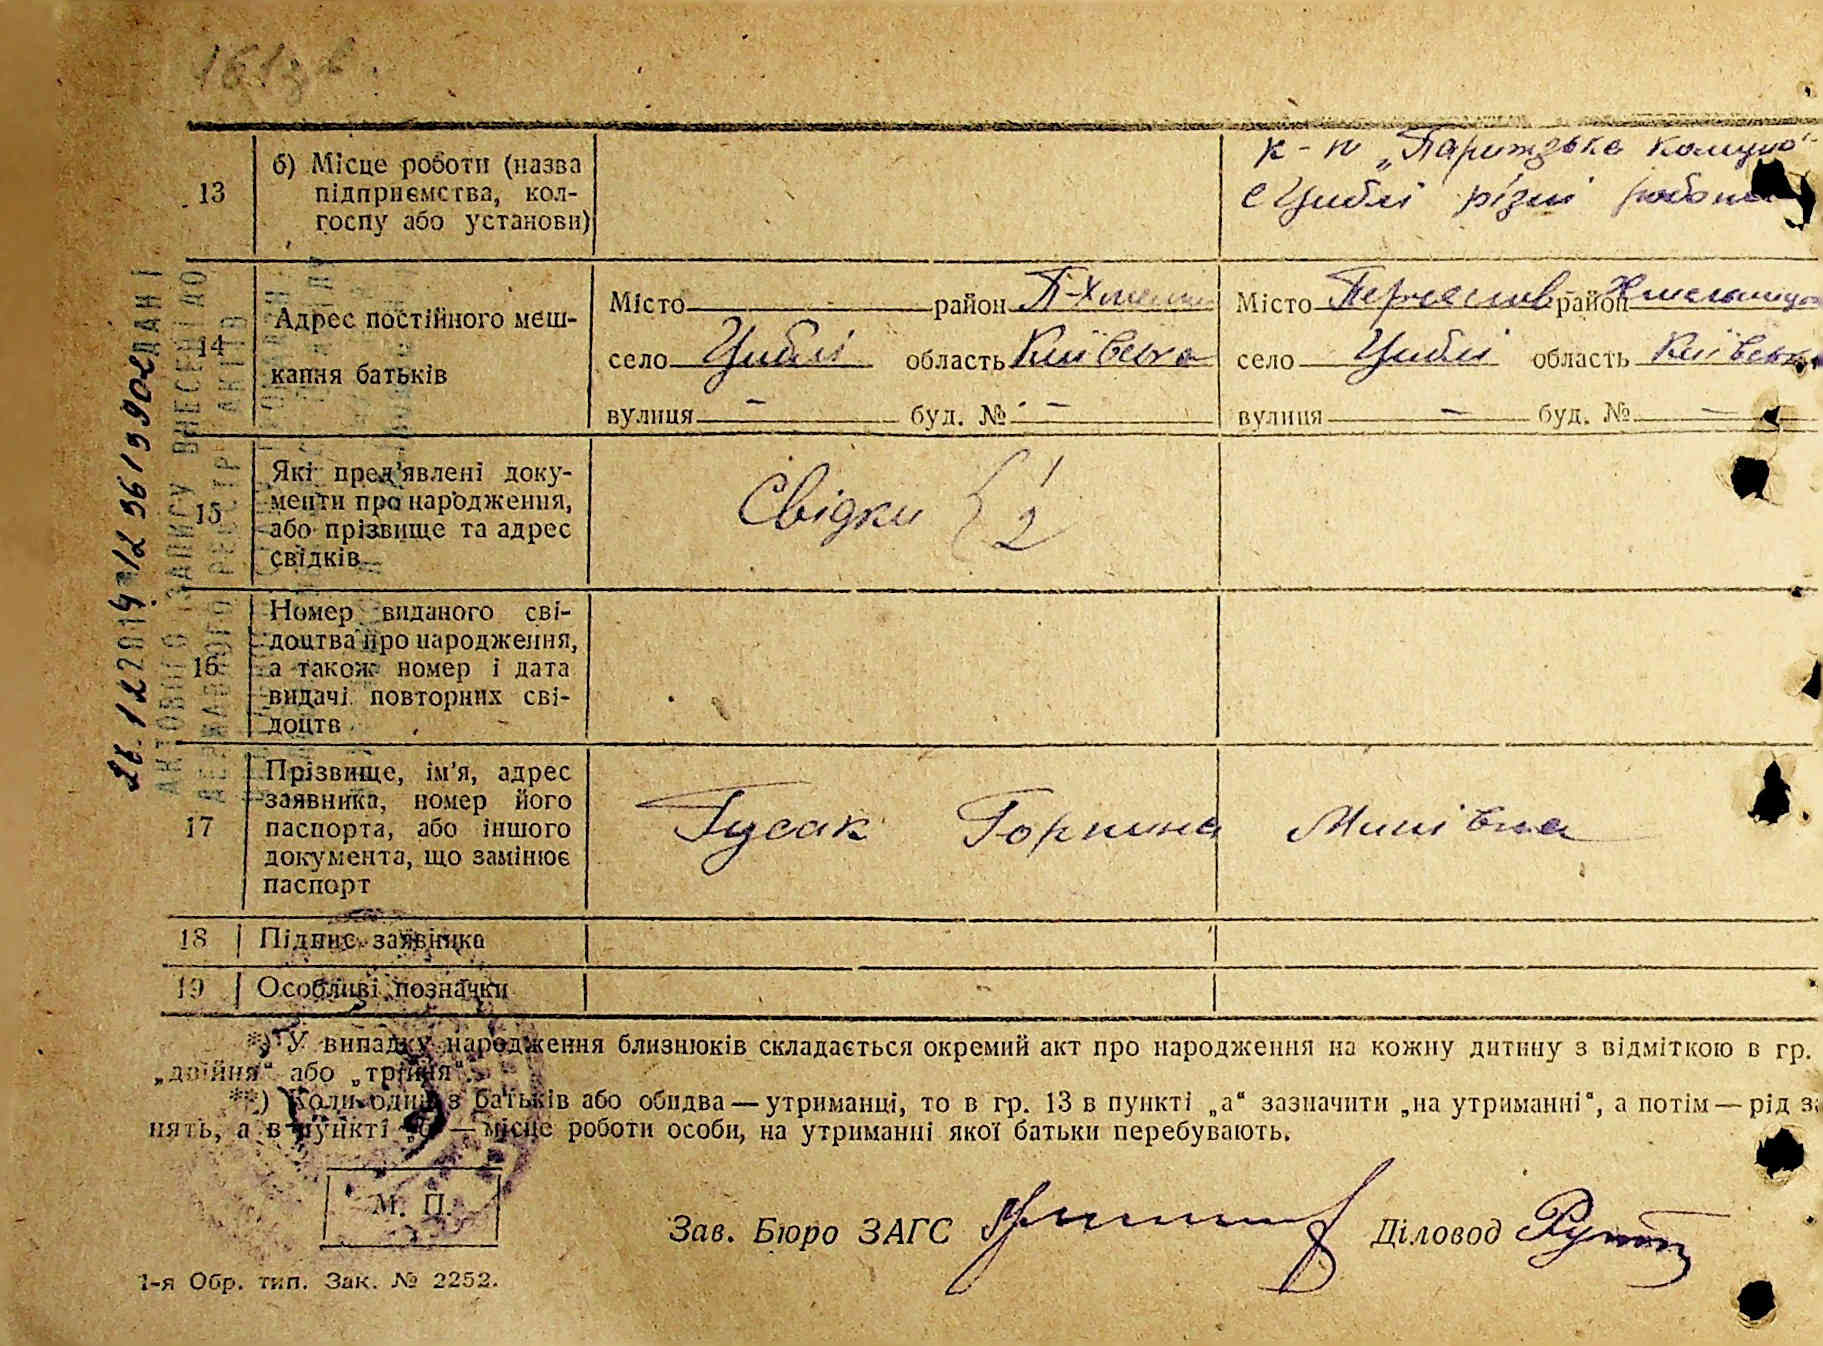 161 зв.
13
б) Місце роботи (назва
підприємства, кол-
госпу або установи)
к-п „Парижська комуна"
с Циблі різні роботи
14
Адрес постійного меш-
кання батьків
Місто район П-Хмельн
село Циблі область Київська
вулиця — буд. № —
Місто Переяслав район Хмельницьк
село Циблі область Київська
вулиця — буд. № —
15
Які пред'явлені доку-
менти про народження,
або прізвище та адрес
свідків
Свідки { 1
2
16
Номер виданого сві-
доцтва про народження,
а також номер і дата
видачі повторних сві-
доцтв
17
Прізвище, ім'я, адрес
заявника, номер його
паспорта, або іншого
документа, що замінює
паспорт
Гусак Горпина
18 Підпис заявника
19 Особливі позначки
*) У випадку народження близнюків складається окремий акт про народження на кожну дитину з відміткою в гр.
„двійня" або „трійня".
**) Коли один з батьків або обидва — утриманці, то в гр. 13 в пункті „а" зазначити „на утриманні", а потім — рід за
нять, а в пункті „б" — місце роботи особи, на утриманні якої батьки перебувають.
М. П.
Зав. Бюро ЗАГС Діловод
1-я Обр. тип. Зак. № 2252.
ДАНІ
АКТОВОГО ЗАПИСУ ВНЕСЕНІ ДО
ДЕРЖАВНОГО РЕЄСТРУ АКТІВ